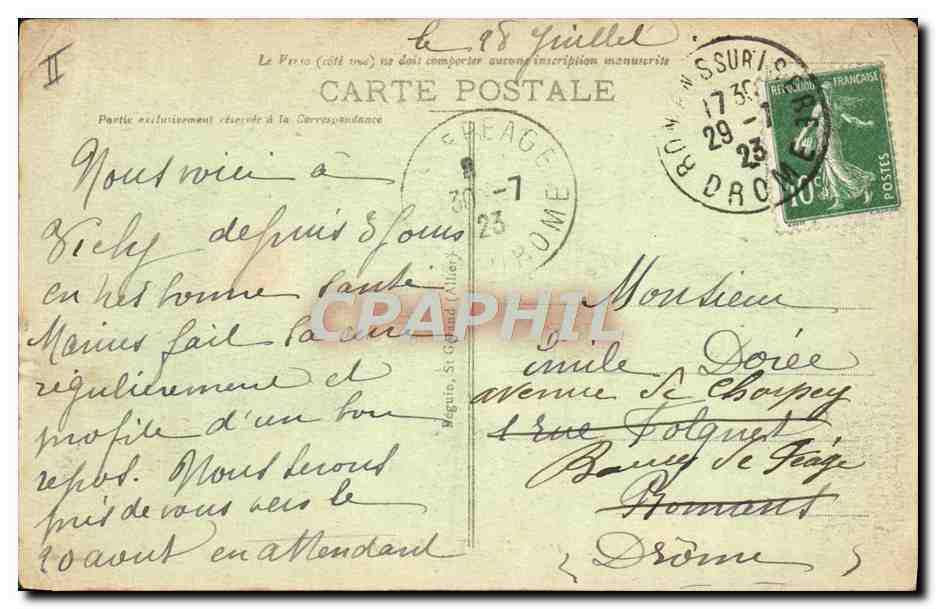 II
le 28 Juillet
Le Verso (côté vue) ne doit comporter aucune inscription manuscrite
CARTE POSTALE
Partie exclusivement réservée à la Correspondance
Nous voici à
Vichy depuis 8 jours
en très bonne santé
Marius fait sa cure
régulièrement et
profite d'un bon
repos. Nous serons
près de vous vers le
20 aout en attendant
Béguin, St Gérand (Allier)
PEAGE
30 -7
23
DROME
ROMANS SUR ISERE
17 30
29 -7
23
DROME
REPUBLIQUE FRANÇAISE
POSTES
10c
Monsieur
Emile Dorée
avenue de Charpey
1 rue
Bourg de Péage
Romans
Drôme
CRAPHIL